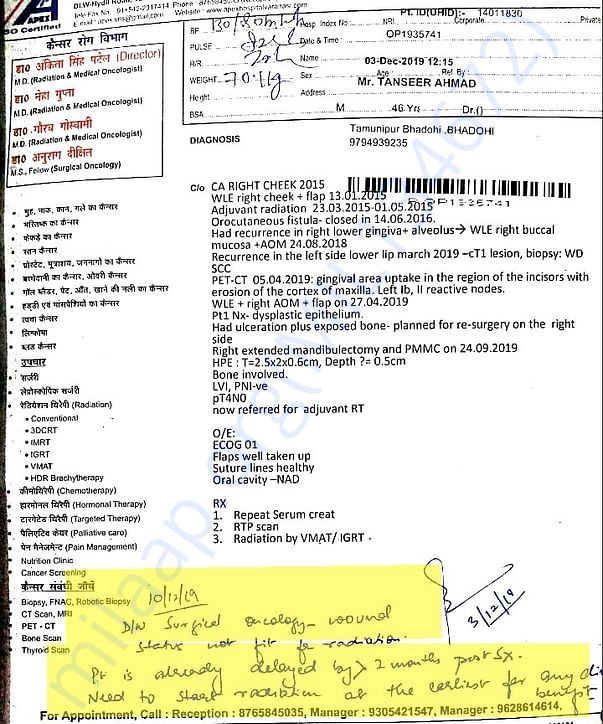 APEX
DLW-Hydil Road,
Tele Fax No. 91-542-2317414 Phone : 8765845035
Website : www.apexhospitalvaranasi.com
ISO Certified
कैन्सर रोग विभाग
डा० अंकिता सिंह पटेल (Director)
M.D. (Radiation & Medical Oncologist)
डा० नेहा गुप्ता
M.D. (Radiation & Medical Oncologist)
डा० गौरव गोस्वामी
M.D. (Radiation & Medical Oncologist)
डा० अनुराग दीक्षित
M.S., Fellow (Surgical Oncology)
BP
PULSE
R/R
WEIGHT 70 kg
Height
BSA
PT.ID(UHID):- 14011830
Hosp. Index No NRI Corporate Private
OP1935741
Date & Time :
03-Dec-2019 12:15
Name
Age Ref By :
Sex Mr. TANSEER AHMAD
Address
M 46 Yrs Dr.()
DIAGNOSIS
Tamunipur Bhadohi ,BHADOHI
9794939235
OP1935741
C/o CA RIGHT CHEEK 2015
WLE right cheek + flap 13.01.2015
Adjuvant radiation 23.03.2015-01.05.2015
Orocutaneous fistula- closed in 14.06.2016.
Had recurrence in right lower gingiva+ alveolus→ WLE right buccal
mucosa +AOM 24.08.2018
Recurrence in the left side lower lip march 2019 –cT1 lesion, biopsy: WD
SCC
PET-CT 05.04.2019: gingival area uptake in the region of the incisors with
erosion of the cortex of maxilla. Left Ib, II reactive nodes.
WLE + right AOM + flap on 27.04.2019
Pt1 Nx- dysplastic epithelium.
Had ulceration plus exposed bone- planned for re-surgery on the right
side
Right extended mandibulectomy and PMMC on 24.09.2019
HPE : T=2.5x2x0.6cm, Depth ?= 0.5cm
Bone involved.
LVI, PNI-ve
pT4N0
now referred for adjuvant RT
O/E:
ECOG 01
Flaps well taken up
Suture lines healthy
Oral cavity –NAD
RX
1. Repeat Serum creat
2. RTP scan
3. Radiation by VMAT/ IGRT .
• मुह, नाक, कान, गले का कैन्सर
• मस्तिष्क का कैन्सर
• फेफड़े का कैन्सर
• स्तन कैन्सर
• प्रोस्टेट, मूत्राशय, जननांगो का कैन्सर
• बच्चेदानी का कैन्सर, ओवरी कैन्सर
• गॉल ब्लैडर, पेट, आँत, खाने की नली का कैन्सर
• हड्डी एवं मांसपेशियों का कैन्सर
• त्वचा कैन्सर
• लिम्फोमा
• ब्लड कैन्सर
उपचार
• सर्जरी
• लेप्रोस्कोपिक सर्जरी
• रेडियेशन थिरैपी (Radiation)
• Conventional
• 3DCRT
• IMRT
• IGRT
• VMAT
• HDR Brachytherapy
• कीमोथिरैपी (Chemotherapy)
• हारमोनल थिरैपी (Hormonal Therapy)
• टारगेटेड थिरैपी (Targeted Therapy)
• पैलिएटिव केयर (Palliative care)
• पेन मैनेजमेन्ट (Pain Management)
Nutrition Clinic
Cancer Screening
कैन्सर संबंधी जाँचें
Biopsy, FNAC, Robotic Biopsy
CT Scan, MRI
PET - CT
Bone Scan
Thyroid Scan
10/12/19
3/12/19
D/W Surgical oncology- wound
status not fit for radiation.
Pt is already delayed by > 2 months post Sx.
Need to start radiation at the earliest for any
benefit
For Appointment, Call : Reception : 8765845035, Manager : 9305421547, Manager : 9628614614,